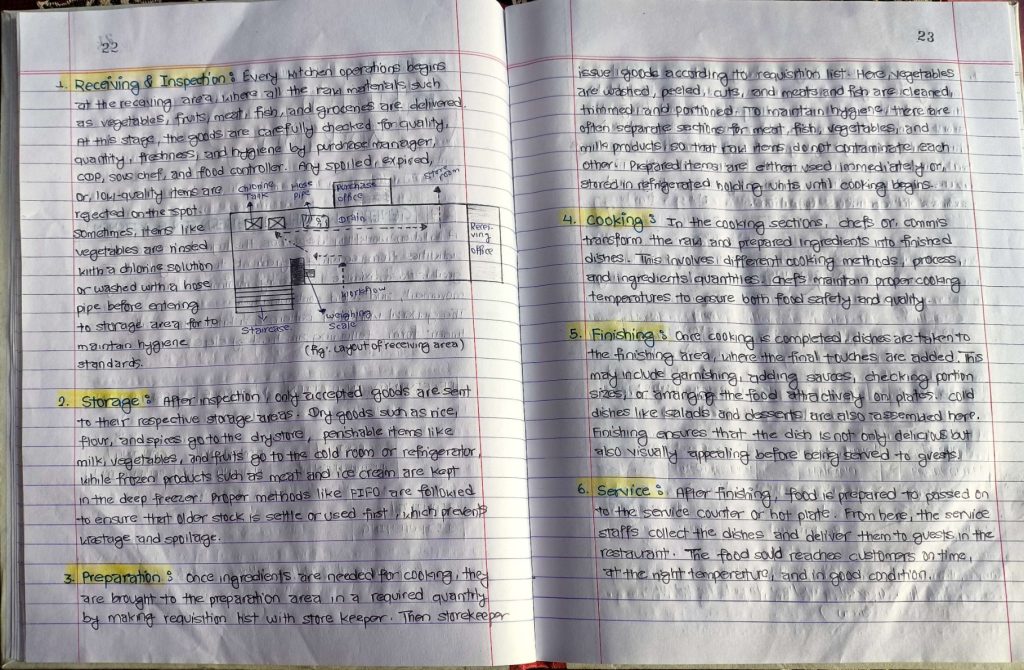 22
1. Receiving & Inspection : Every kitchen operations begins
at the receiving area, where all the raw materials such
as vegetables, fruits, meat, fish, and groceries are delivered.
At this stage, the goods are carefully checked for quality,
quantity, freshness, and hygiene by purchase manager,
CDP, sous chef, and food controller. Any spoiled, expired,
or, low-quality items are
rejected on the spot.
Sometimes, items like
vegetables are rinsed
with a chlorine solution
or washed with a hose
pipe before entering
to storage area for to
maintain hygiene
standards.
chlorine
tank
Hose
pipe
Purchase
office
Store
room
Drain
Recei-
ving
office
Workflow
weighing
scale
Staircase
(fig: Layout of receiving area)
2. Storage : After inspection, only accepted goods are sent
to their respective storage areas. Dry goods such as rice,
flour, and spices go to the dry store, perishable items like
milk, vegetables, and fruits go to the cold room or refrigerator,
while frozen products such as meat and ice cream are kept
in the deep freezer. Proper methods like FIFO are followed
to ensure that older stock is settle or used first, which prevents
wastage and spoilage.
3. Preparation : Once ingredients are needed for cooking, they
are brought to the preparation area in a required quantity
by making requisition list with store keeper. Then storekeeper
23
issue goods according to requisition list. Here, vegetables
are washed, peeled, cuts, and meats and fish are cleaned,
trimmed, and portioned. To maintain hygiene, there are
often separate sections for meat, fish, vegetables, and
milk products so that raw items do not contaminate each
other. Prepared items are either used immediately or,
stored in refrigerated holding units until cooking begins.
4. Cooking : In the cooking sections, chefs or commis
transform the raw and prepared ingredients into finished
dishes. This involves different cooking methods, process,
and ingredients quantities, chefs maintain proper cooking
temperatures to ensure both food safety and quality.
5. Finishing : Once cooking is completed, dishes are taken to
the finishing area, where the final touches are added. This
may include garnishing, adding sauces, checking portion
sizes, or arranging the food attractively on plates. cold
dishes like salads and desserts are also assembled here.
Finishing ensures that the dish is not only delicious but
also visually appealing before being served to guests.
6. Service : After finishing, food is prepared to passed on
to the service counter or hot plate. From here, the service
staffs collect the dishes and deliver them to guests in the
restaurant. The food sould reaches customers on time,
at the right temperature, and in good condition.